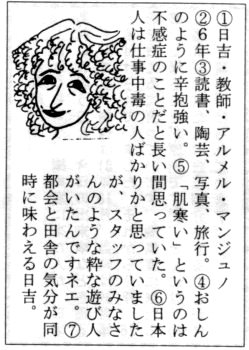 ①日吉・教師・アルメル・マンジュノ
②6年③読書、陶芸、写真、旅行。④おしん
のように辛抱強い。⑤「肌寒い」というのは
不感症のことだと長い間思っていた。⑥日本
人は仕事中毒の人ばかりかと思っていました
が、スタッフのみなさ
んのような粋な遊び人
がいたんですネエ。⑦
都会と田舎の気分が同
時に味わえる日吉。